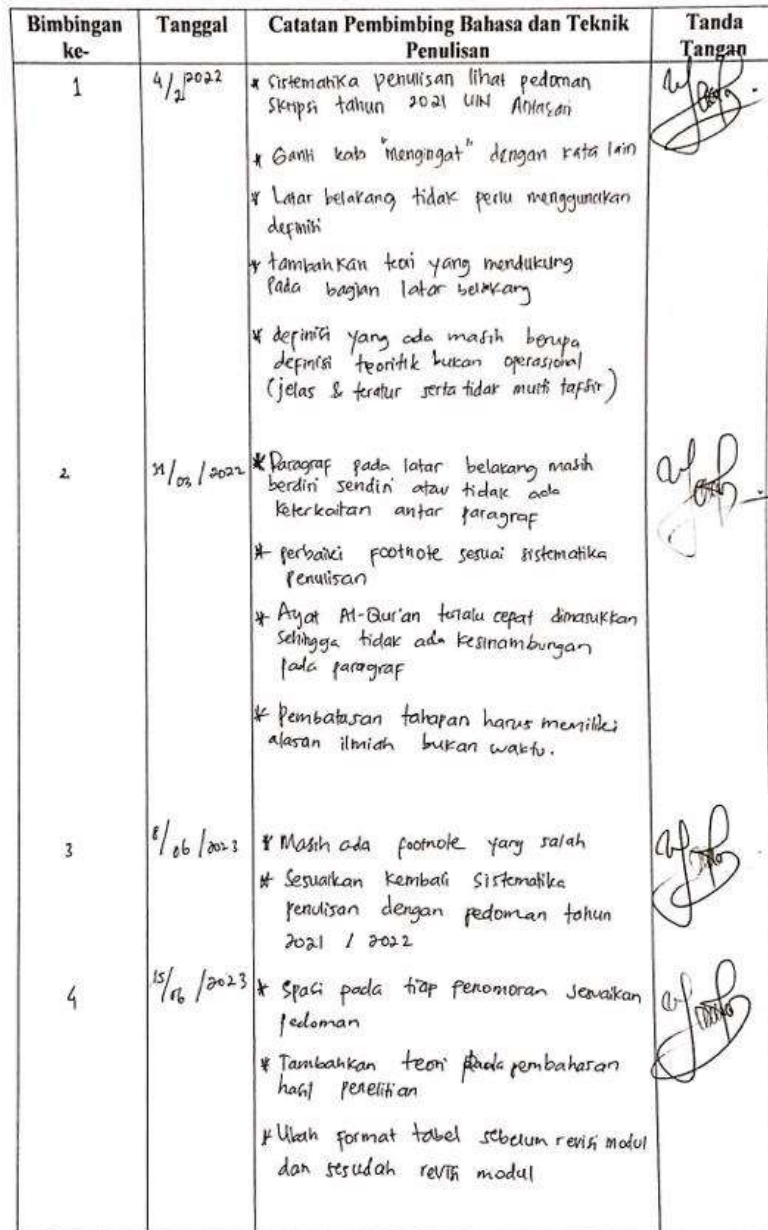 Bimbingan ke- Tanggal Catatan Pembimbing Bahasa dan Teknik Penulisan Tanda Tangan
1 4/2/2022 * Sistematika penulisan lihat pedoman
skripsi tahun 2021 UIN Antasari
* Ganti kata "mengingat" dengan kata lain
* Latar belakang tidak perlu menggunakan
definisi
* tambahkan teori yang mendukung
pada bagian latar belakang
* definisi yang ada masih berupa
definisi teoritik bukan operasional
(jelas & teratur serta tidak multi tafsir)
2 /03/2022 * Paragraf pada latar belakang masih
berdiri sendiri atau tidak ada
keterkaitan antar paragraf
* perbaiki footnote sesuai sistematika
penulisan
* Ayat Al-Qur'an terlalu cepat dimasukkan
sehingga tidak ada kesinambungan
pada paragraf
* Pembatasan tahapan harus memiliki
alasan ilmiah bukan waktu.
3 8/06/2023 * Masih ada footnote yang salah
* Sesuaikan kembali sistematika
penulisan dengan pedoman tahun
2021 / 2022
4 15/06/2023 * Spasi pada tiap penomoran sesuaikan
pedoman
* Tambahkan teori pada pembahasan
hasil penelitian
* Ubah format tabel sebelum revisi modul
dan sesudah revisi modul